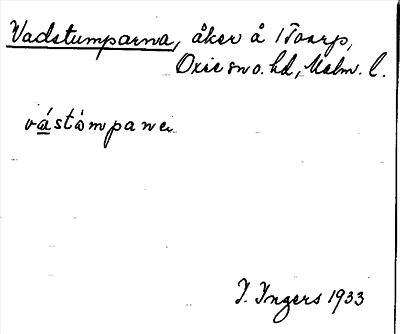 Vadstumparna, åker å 1 Toarp,
Oxie sn o. hd, Malm. l.
vástòmpane
I. Ingers 1933